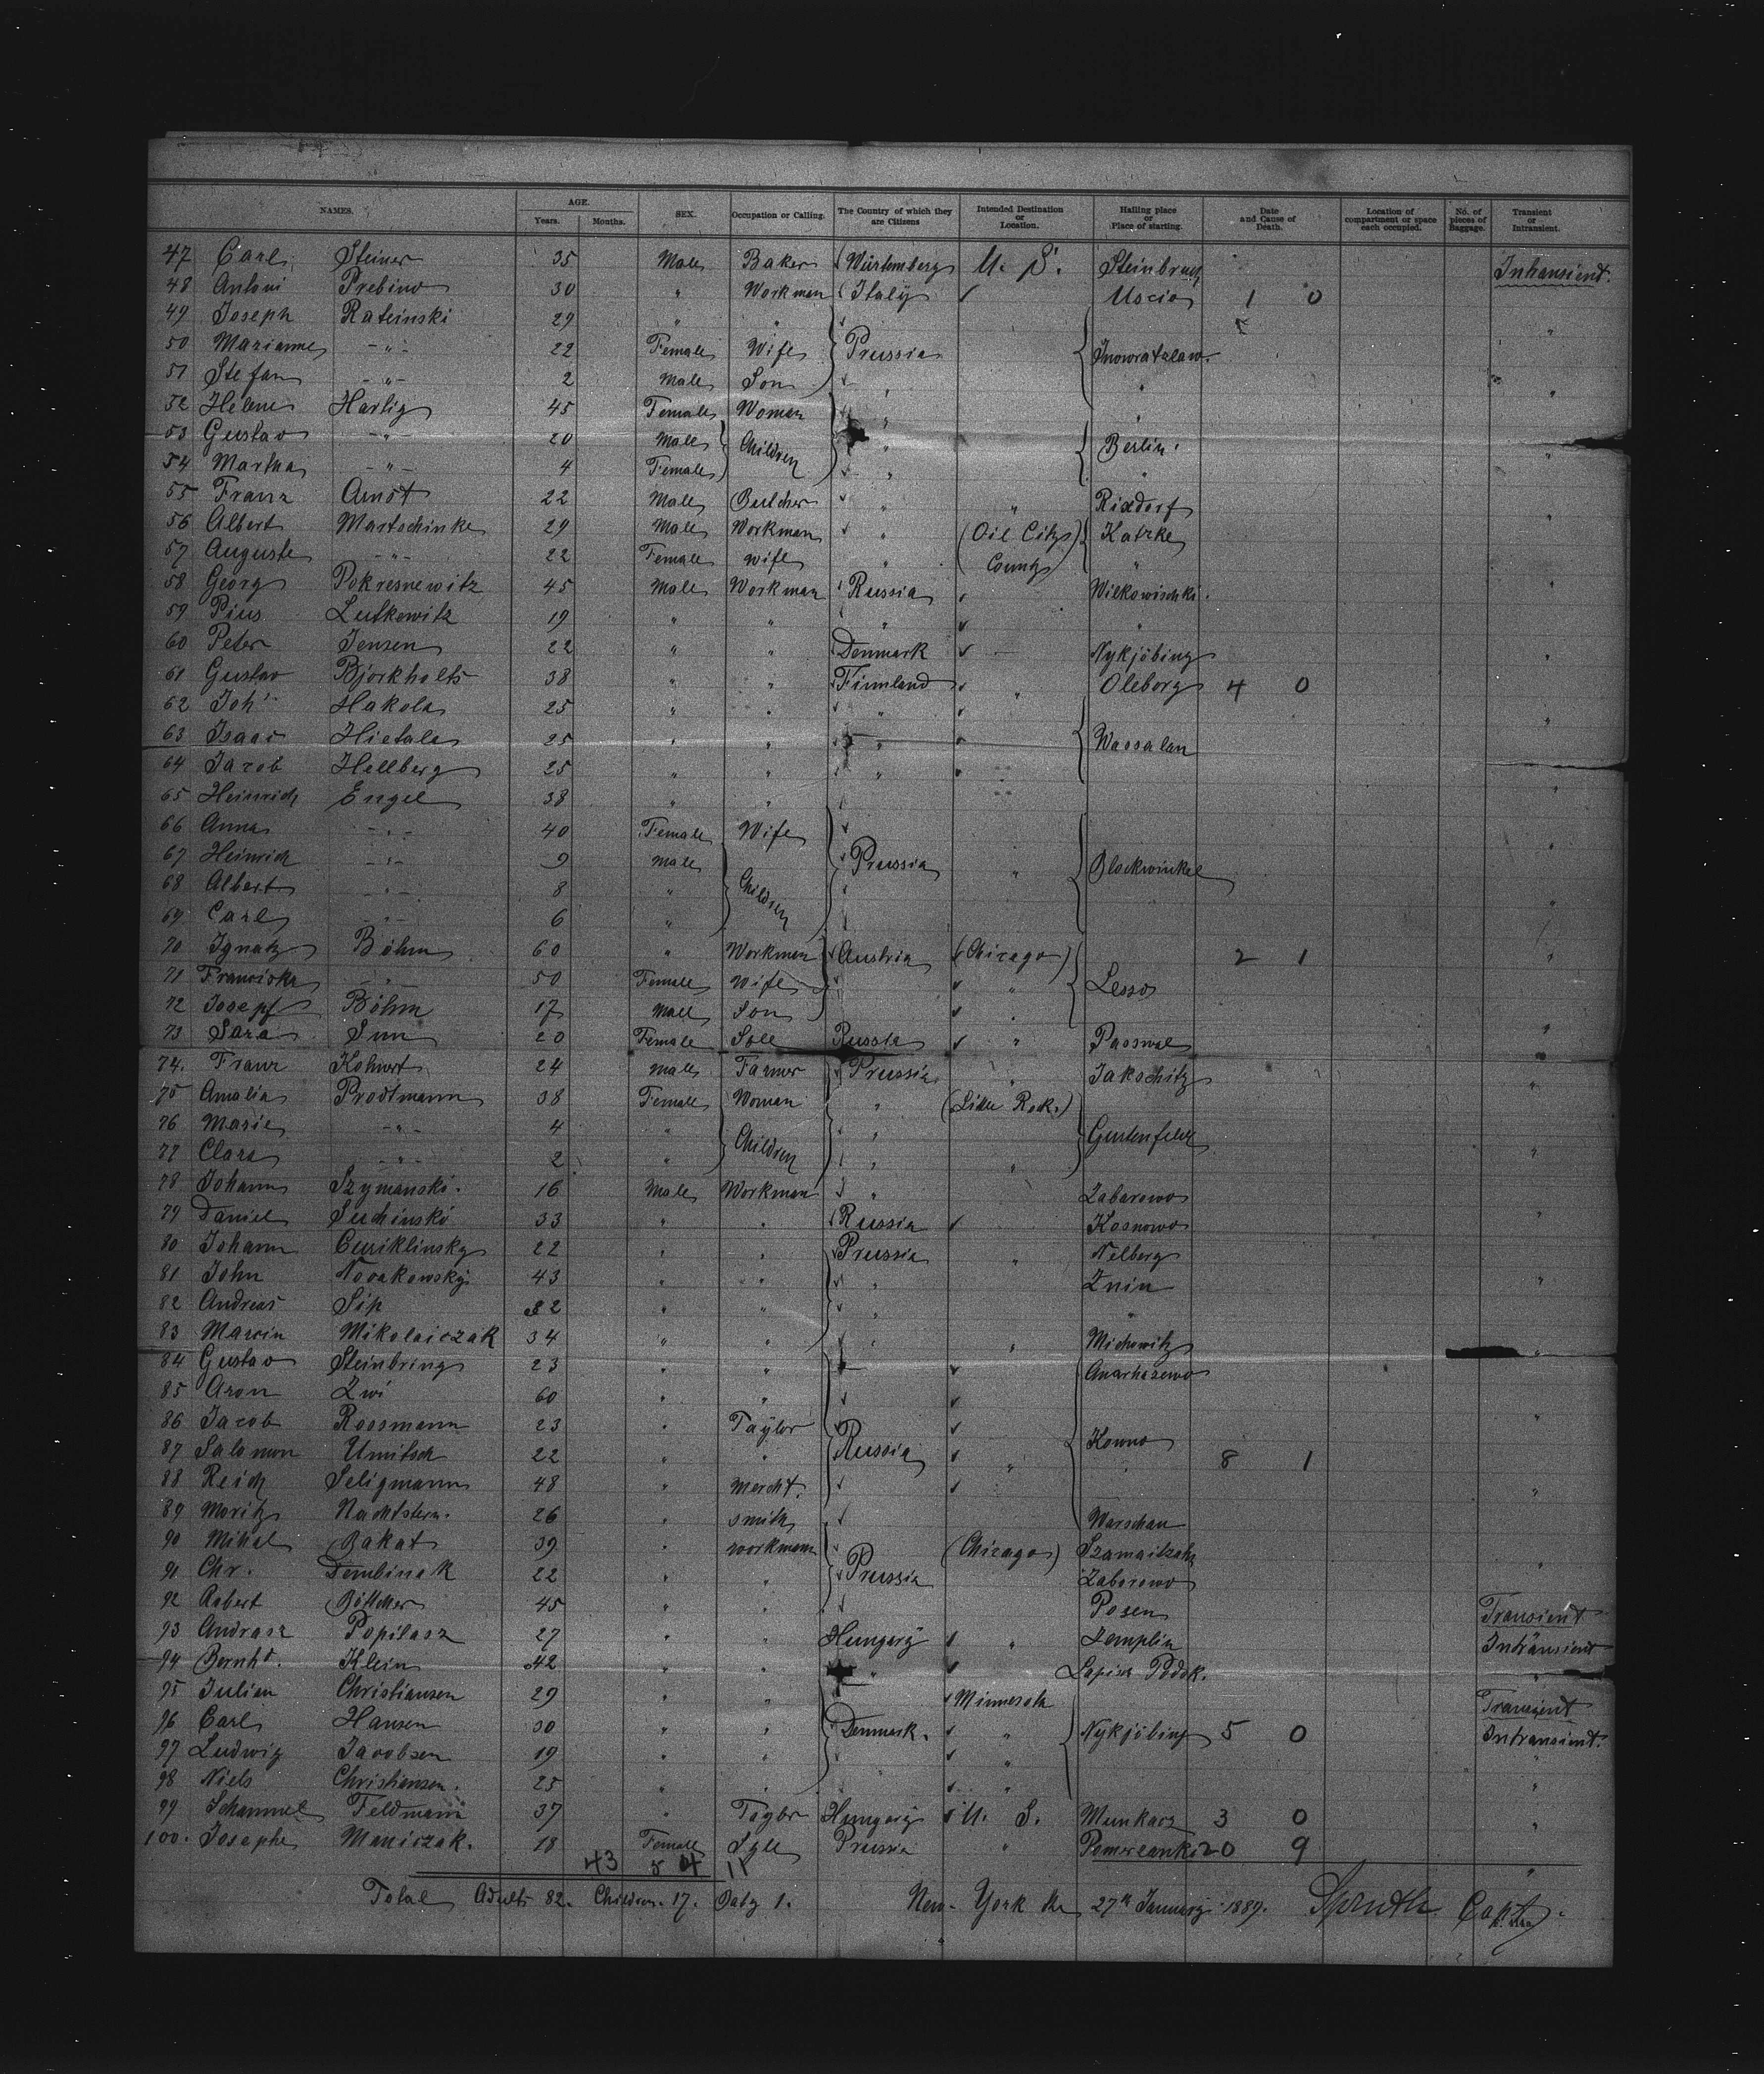 NAMES. AGE. Years. Months. SEX. Occupation or Calling. The Country of which they are Citizens Intended Destination or Location. Hailing place or Place of starting. Date and Cause of Death. Location of compartment or space each occupied. No. of pieces of Baggage. Transient or Intransient.
47 Carl Steiner 35 Male Baker Würtemberg U. S. Intransient.
48 Antoni Prebino 30 " Workman Italy Uscio 1 0
49 Joseph Rateinski 29 " " "
50 Marianne -"- 22 Female Wife Prussia Inowratzlaw.
51 Stefan -"- 2 Male Son " " "
52 Helene Hartig 45 Female Woman "
53 Gustav -"- 20 Male Children " Berlin. "
54 Martha -"- 4 Female " "
55 Franz Arndt 22 Male Butcher " " Rixdorf "
56 Albert Martschinke 29 Male Workman " (Oil City) Katzke
57 Auguste -"- 22 Female wife " County " "
58 Georg Pokresnewitz 45 Male Workman Russia Wilkowischki.
59 Pius Lutkowitz 19 " " " "
60 Peter Jensen 22 " " Denmark Nykjöbing "
61 Gustav Björkholts 38 " " Finnland " Oleborg 4 0
62 Joh Hakola 25 " " " "
63 Isaac Hietala 25 " " " Waasalan
64 Jacob Hellberg 25 " " "
65 Heinrich Engel 38 " " "
66 Anna -"- 40 Female Wife
67 Heinrich -"- 9 male Children Prussia " Blockwinkel "
68 Albert -"- 8 "
69 Carl -"- 6 " "
70 Ignatz Böhm 60 " Workman Austria (Chicago) 2 1 "
71 Franciska -"- 50 Female Wife " Lesso
72 Josepf Böhm 17 Male Son " "
73 Sara Sun 20 Female Russia " Paoswal "
74. Franz Kohnert 24 male Farmer Prussia " Jakschitz "
75 Amalia Prodtmann 38 Female Woman "
76 Marie -"- 4 " Children " Gurtenfeld
77 Clara -"- 2 " " " "
78 Johann Szymanski. 16 Male Workman " Zaborowo
79 Daniel Suchinski 33 " " Russia Kosnowo "
80 Johann Curiklinsky 22 " " Prussia " Nelberg
81 John Novakowsky 43 " " " Znin "
82 Andreas Sip 32 " " " "
83 Marcin Mikolaiczak 34 " " " " Michowitz "
84 Gustav Steinbring 23 " "
85 Aron Zwi 60 " "
86 Jacob Roosmann 23 " Taylor "
87 Salomon Umitsch 22 " " Russia " Kowno 8 1
88 Reich Seligmann 48 " Mercht. "
89 Moritz Nachtstern. 26 " smith Warschau
90 Mihal Bakat 39 " workmann (Chicago) "
91 Chr. Dembinak 22 " " Prussia Zaborowo
92 Robert Böttcher 45 " " Posen Transient
93 Andrasz Popilasz 27 " " Hungary " Zemplin Intransient
94 Bernhd. Klein 42 " " " "
95 Julian Christiansen 29 " " Minnesota Transient
96 Carl Hansen 30 " " Denmark. " Nykjöbing 5 0 Intransient.
97 Ludwig Jacobsen 19 " " " "
98 Niels Christiansen. 25 " " " " "
99 Schammel Feldmann 37 " Taylor Hungary U. S. Munkacz 3 0 "
100. Josephe Maniczak. 18 Female Prussia " 20 9 "
43 5 4 11
Total Adults 82. Children. 17. Baby 1. New-York the 27th January 1889. Spruth Capt.